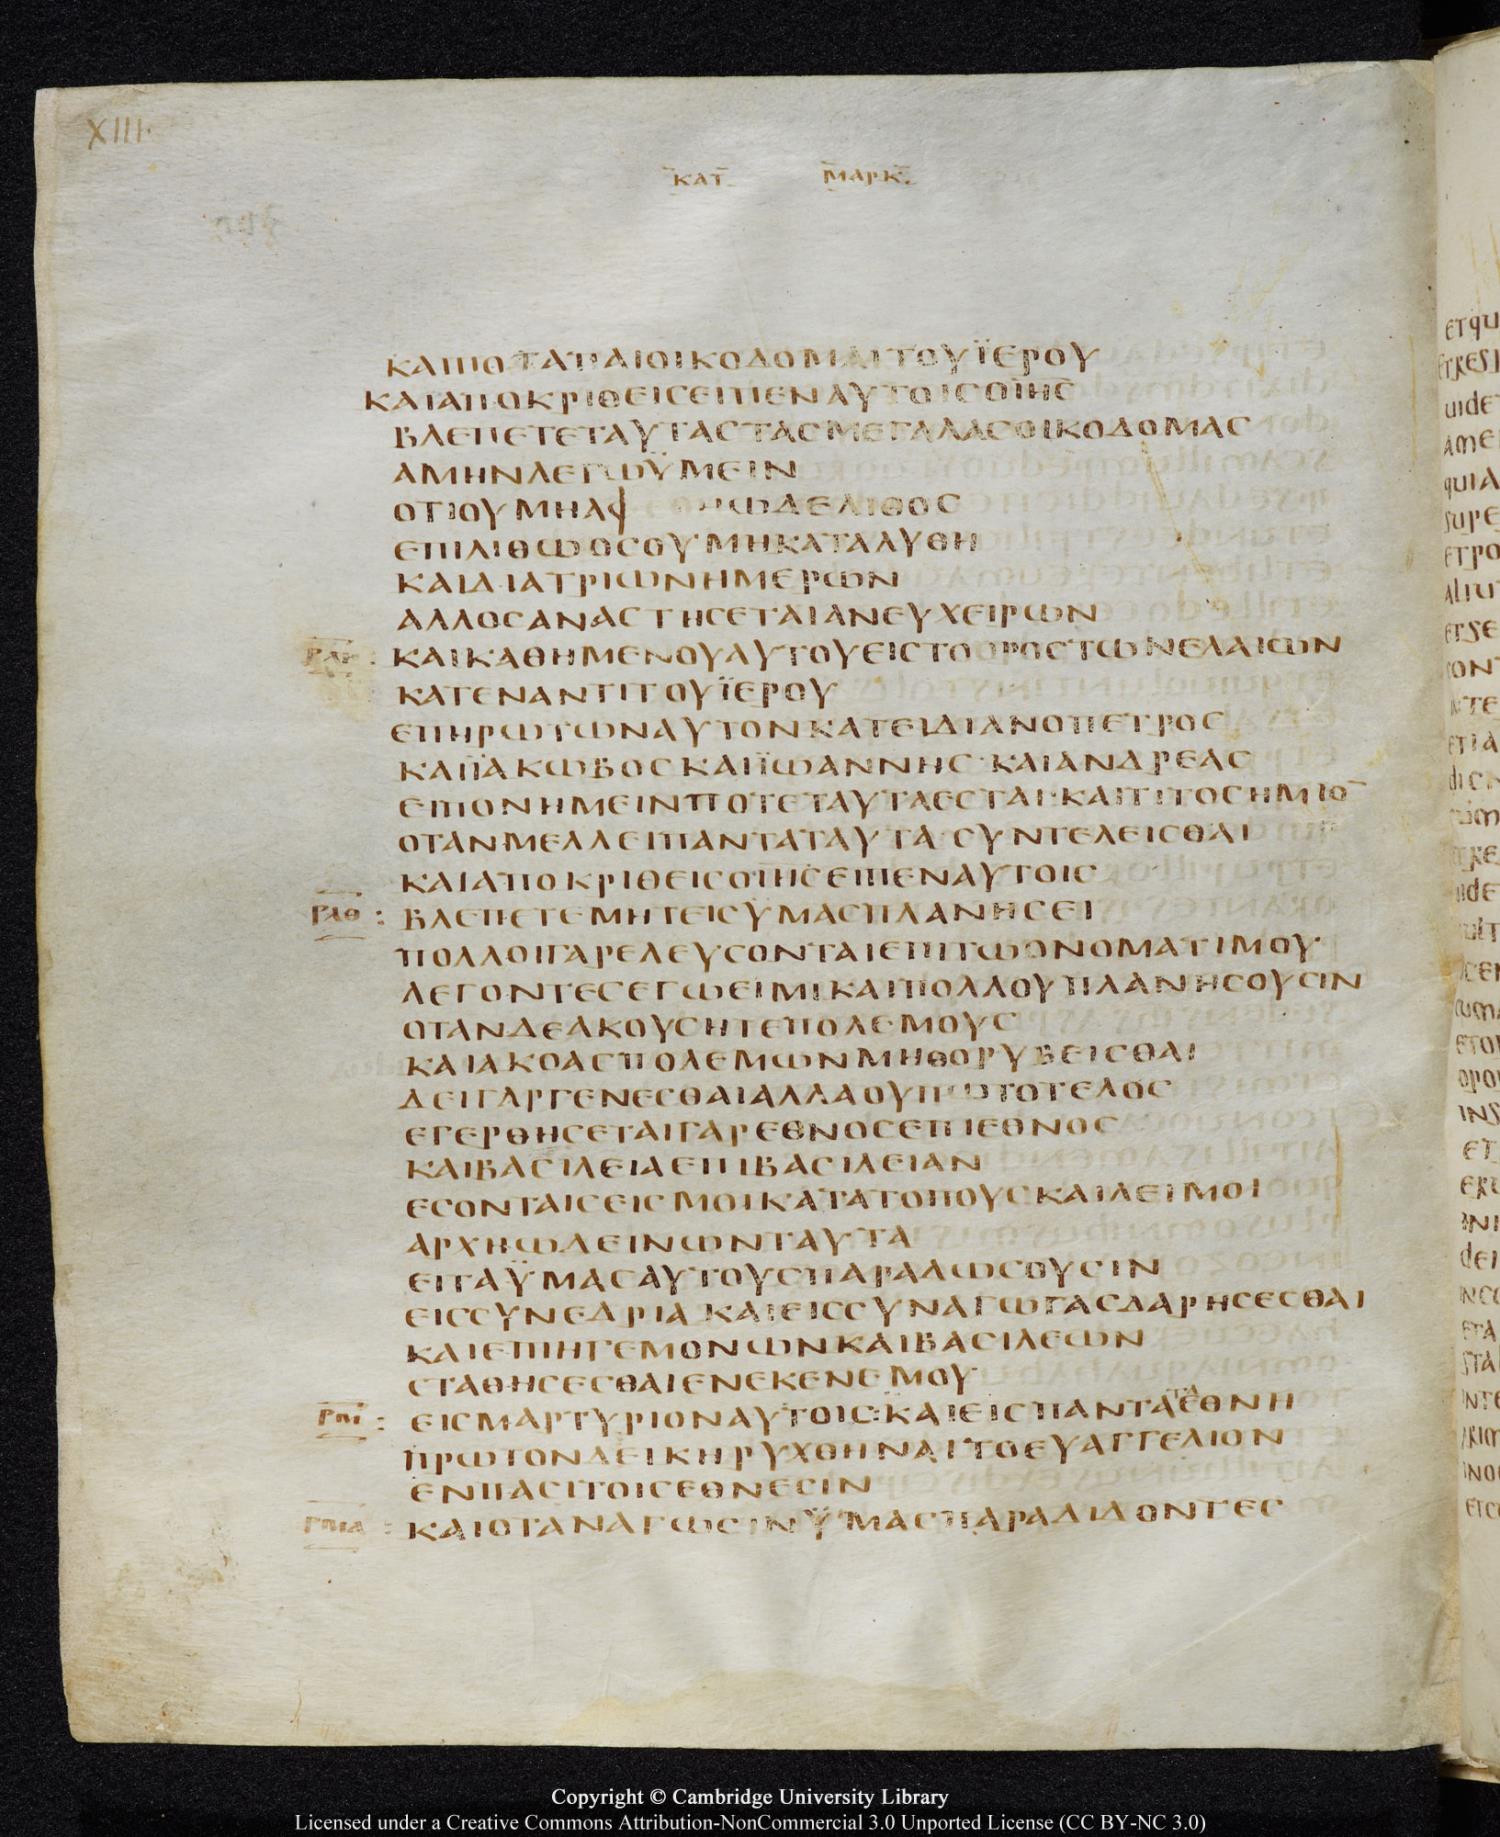 XIII
ΚΑΤ ΜΑΡΚ
ΚΑΙΠΟΤΑΠΑΙΟΙΚΟΔΟΜΑΙΤΟΥΪΕΡΟΥ
ΚΑΙΑΠΟΚΡΙΘΕΙCΕΙΠΕΝΑΥΤΟΙCΟΙΗC
ΒΛΕΠΕΤΕΤΑΥΤΑCΤΑCΜΕΓΑΛΑCΟΙΚΟΔΟΜΑC
ΑΜΗΝΛΕΓΩΫΜΕΙΝ
ΟΤΙΟΥΜΗΑφ ΩΔΕΛΙΘΟC
ΕΠΙΛΙΘΩΟCΟΥΜΗΚΑΤΑΛΥΘΗ
ΚΑΙΔΙΑΤΡΙΩΝΗΜΕΡΩΝ
ΑΛΛΟCΑΝΑCΤΗCΕΤΑΙΑΝΕΥΧΕΙΡΩΝ
ΡΛΗ : ΚΑΙΚΑΘΗΜΕΝΟΥΑΥΤΟΥΕΙCΤΟΟΡΟCΤΩΝΕΛΑΙΩΝ
ΚΑΤΕΝΑΝΤΙΤΟΥΪΕΡΟΥ
ΕΠΗΡΩΤΩΝΑΥΤΟΝΚΑΤΕΙΔΙΑΝΟΠΕΤΡΟC
ΚΑΙΪΑΚΩΒΟCΚΑΙΪΩΑΝΝΗC·ΚΑΙΑΝΔΡΕΑC
ΕΙΠΟΝΗΜΕΙΝΠΟΤΕΤΑΥΤΑΕCΤΑΙ·ΚΑΙΤΙΤΟCΗΜΙΟ̅
ΟΤΑΝΜΕΛΛΕΙΠΑΝΤΑΤΑΥΤΑ·CΥΝΤΕΛΕΙCΘΑΙ
ΚΑΙΑΠΟΚΡΙΘΕΙCΟΙΗCΕΙΠΕΝΑΥΤΟΙC
ΡΛΘ : ΒΛΕΠΕΤΕΜΗΤΕΙCΥΜΑCΠΛΑΝΗCΕΙ
ΠΟΛΛΟΙΓΑΡΕΛΕΥCΟΝΤΑΙΕΠΙΤΩΟΝΟΜΑΤΙΜΟΥ
ΛΕΓΟΝΤΕCΕΓΩΕΙΜΙΚΑΙΠΟΛΛΟΥΠΛΑΝΗCΟΥCΙΝ
ΟΤΑΝΔΕΑΚΟΥCΗΤΕΠΟΛΕΜΟΥC
ΚΑΙΑΚΟΑCΠΟΛΕΜΩΝΜΗΘΟΡΥΒΕΙCΘΑΙ
ΔΕΙΓΑΡΓΕΝΕCΘΑΙΑΛΛΑΟΥΠΩΤΟΤΕΛΟC
ΕΓΕΡΘΗCΕΤΑΙΓΑΡΕΘΝΟCΕΠΙΕΘΝΟC
ΚΑΙΒΑCΙΛΕΙΑΕΠΙΒΑCΙΛΕΙΑΝ
ΕCΟΝΤΑΙCΕΙCΜΟΙΚΑΤΑΤΟΠΟΥCΚΑΙΛΕΙΜΟΙ
ΑΡΧΗΩΔΕΙΝΩΝΤΑΥΤΑ
ΕΙΤΑΫΜΑCΑΥΤΟΥCΠΑΡΑΔΩCΟΥCΙΝ
ΕΙCCΥΝΕΔΡΙΑ ΚΑΙΕΙCCΥΝΑΓΩΓΑCΔΑΡΗCΕCΘΑΙ
ΚΑΙΕΠΙΗΓΕΜΟΝΩΝΚΑΙΒΑCΙΛΕΩΝ
CΤΑΘΗCΕCΘΑΙΕΝΕΚΕΝΕΜΟΥ
ΡΜ : ΕΙCΜΑΡΤΥΡΙΟΝΑΥΤΟΙC:ΚΑΙΕΙCΠΑΝΤΑΤΑΕΘΝΗ
ΠΡΩΤΟΝΔΕΙΚΗΡΥΧΘΗΝΑΙΤΟΕΥΑΓΓΕΛΙΟΝ
ΕΝΠΑCΙΤΟΙCΕΘΝΕCΙΝ
ΡΜΑ : ΚΑΙΟΤΑΝΑΓΩCΙΝΫΜΑCΠΑΡΑΔΙΔΟΝΤΕC
Copyright © Cambridge University Library
Licensed under a Creative Commons Attribution-NonCommercial 3.0 Unported License (CC BY-NC 3.0)